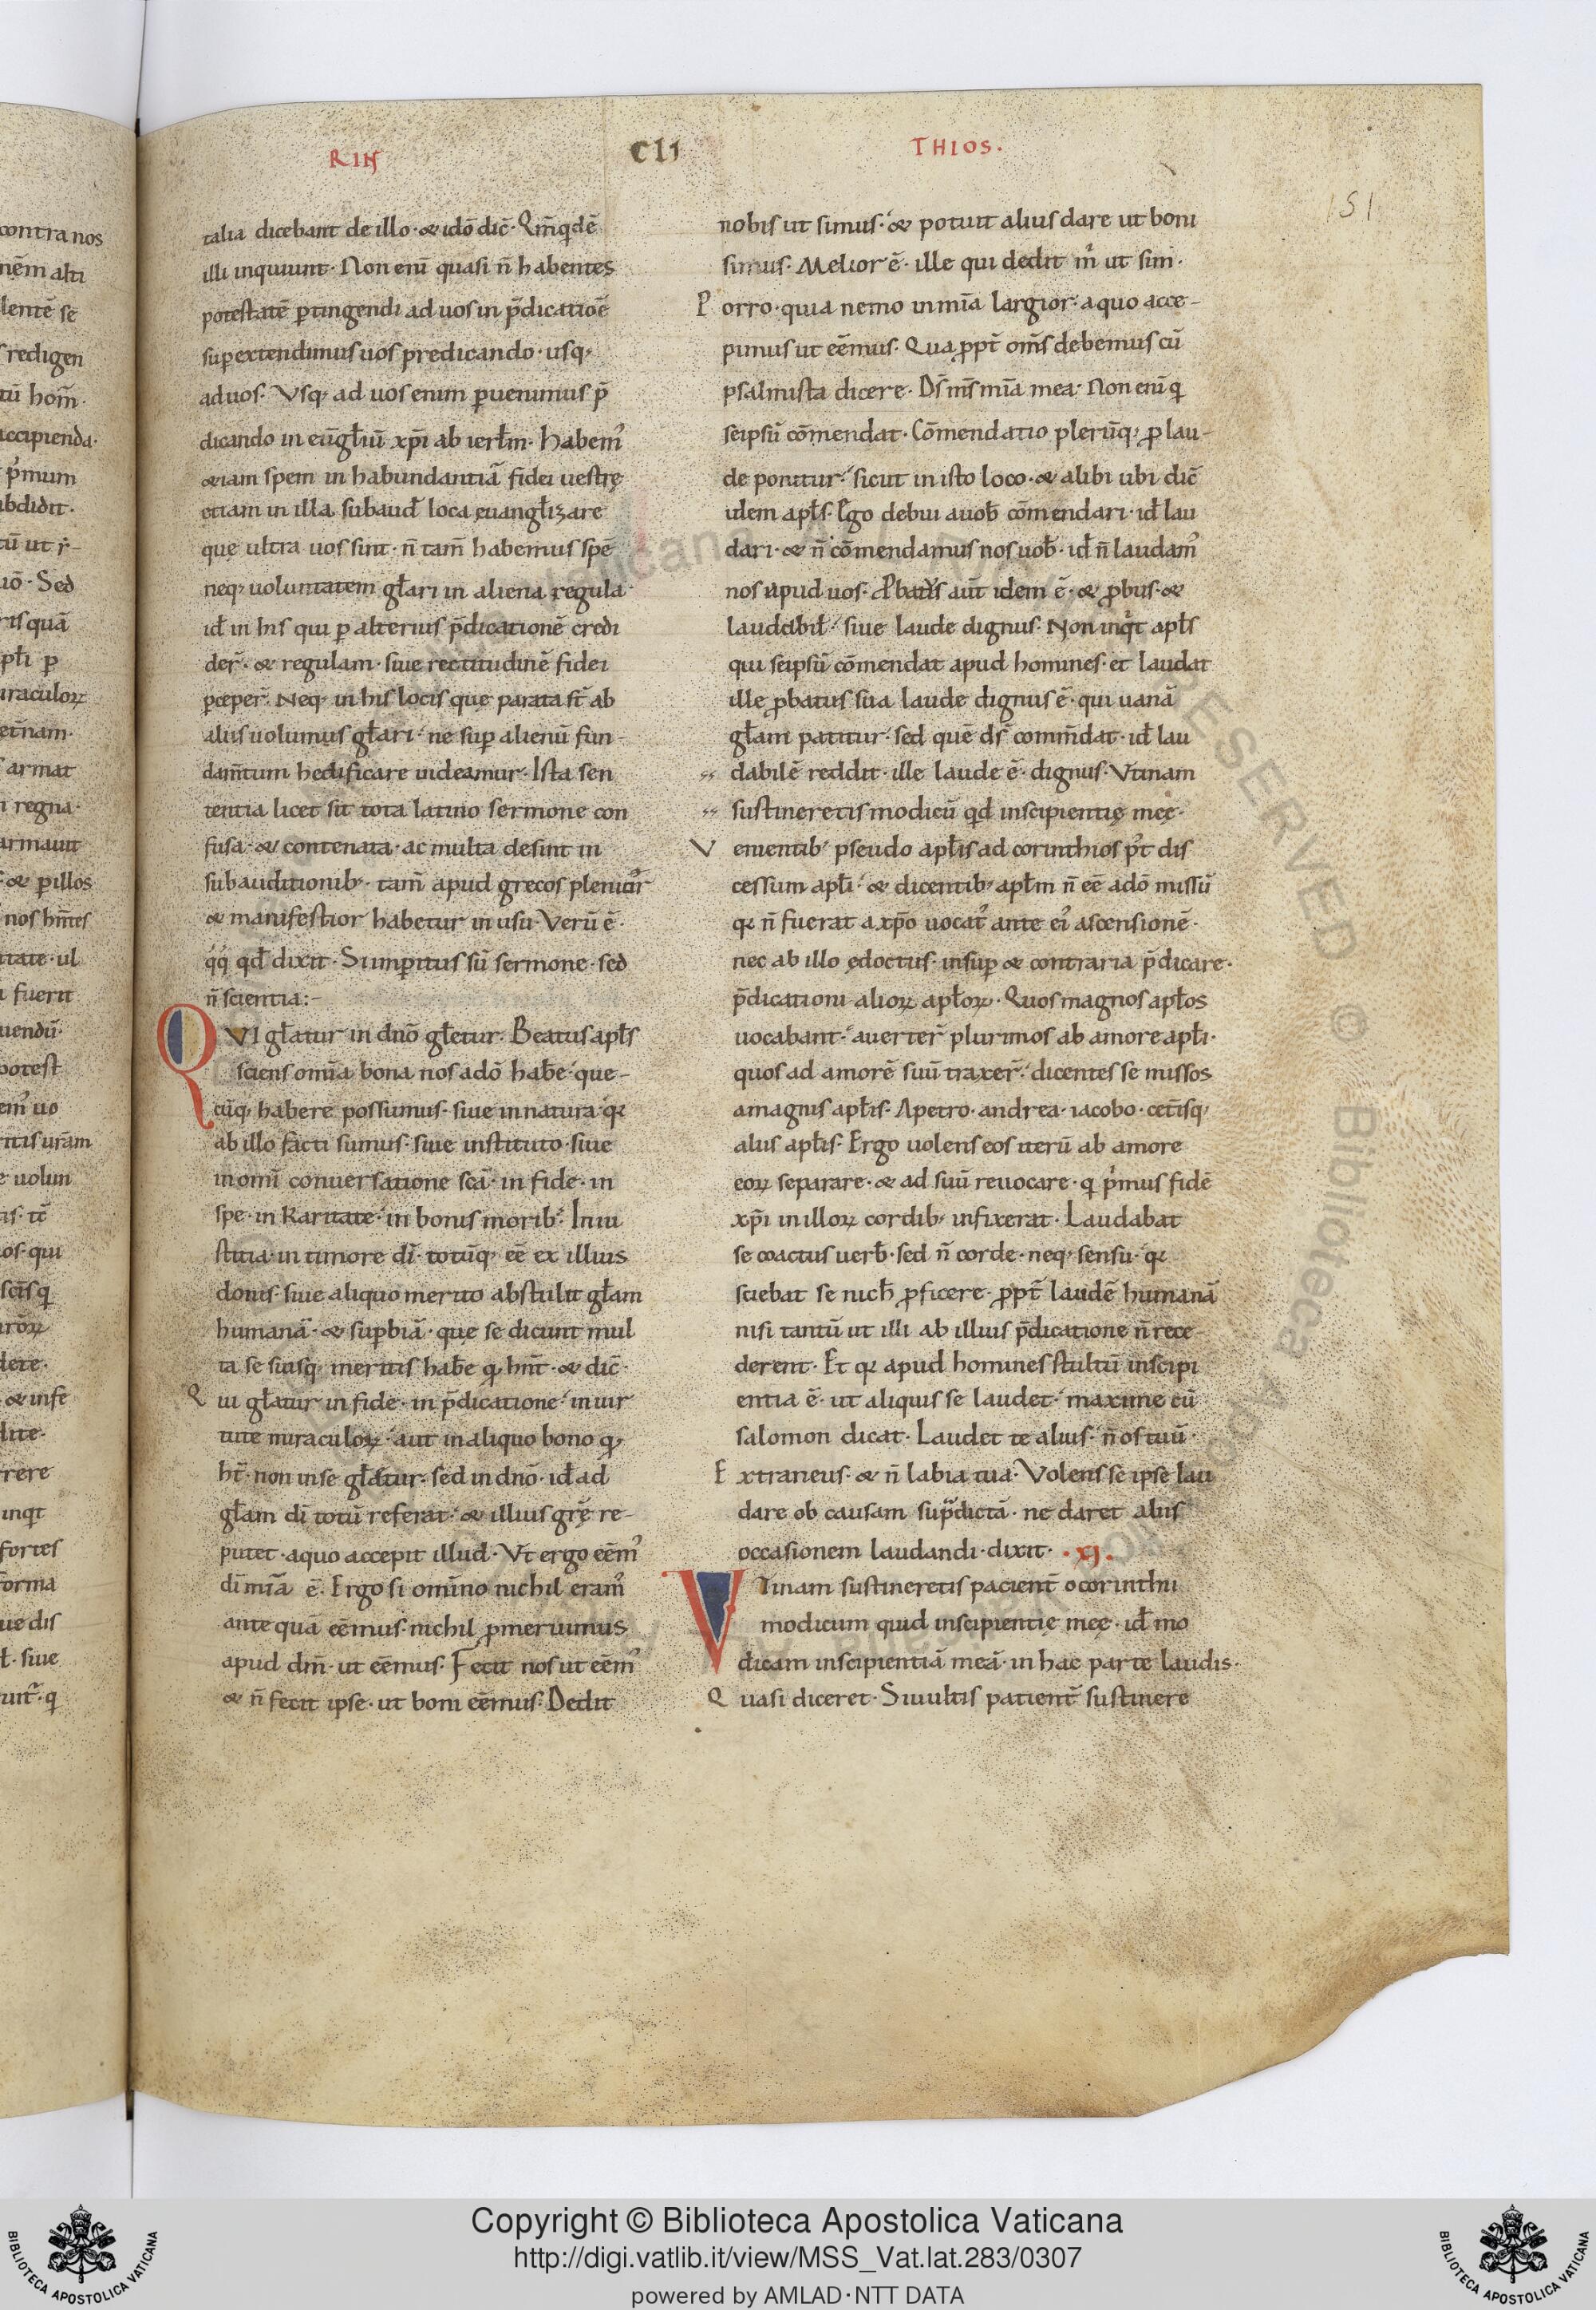 RIN
CLI
THIOS.
151
talia dicebant de illo· & idō dic̄· Qm̄ qdē
illi inquiunt· Non enī quasi n̄ habentes
potestatē ꝑtingendi ad uos in p̄dicatiōē
suꝑextendimus uos predicando· usq;
ad uos· Vsq; ad uos enim ꝑuenimus p̄
dicando in eūgl̄iū xp̄i ab ierl̄m· Habem᾽
&iam spem in habundantiā fidei uestrę
etiam in illa subaud̄ loca euangl̄izare
quę ultra uos sint· n̄ tam̄ habemus spē
neq; uoluntatem gl̄ari in aliena regula·
id̄ in his qui ꝑ alterius p̄dicationē credi
der̄· & regulam· siue rectitudinē fidei
ꝑceper̄· Neq; in his locis que parata st̄ ab
aliis uolumus gl̄ari· ne suꝑ alienū fun
dam̄tum hedificare uideamur· Ista sen
tentia licet sit tota latino sermone con
fusa· & contenata· ac multa desint in
subauditionib;· tam̄ apud grecos pleniour
& manifestior habetur in usu· Verū ē·
qd̄ dixit· Si imꝑitus sū sermone· sed
n̄ scientia:-
QVI gl̄atur in dnō gl̄etur· Beatus apl̄s
sciens omīa bona nos adō hab̄e· que-
cūq; habere possumus· siue in natura· qꝛ
ab illo facti sumus· siue instituto· siue
in omī conuersatione scā· in fide· in
spe· in karitate· in bonis morib;· In iu
stitia· in timore dī· totūq; eē ex illius
donis· siue aliquo merito abstulit gl̄am
humanā· & suꝑbiā· quę se dicunt mul
ta se suisq; meritis hab̄e q̄ hn̄t· & dic̄·
Qui gl̄atur in fide· in p̄dicatione· in uir
tute miraculoꝝ· aut in aliquo bono q̄
ht̄· non in se gl̄atur· sed in dnō· id̄ ad
gl̄am dī totū referat· & illius grę̄ re-
putet· a quo accepit illud· Vt ergo eēm᾽
dī mīa ē· Ergo si omīno nichil eram᾽
ante quā eēmus· nichil ꝓmeruimus
apud dm̄· ut eēmus· Fecit nos ut eēm᾽
& n̄ fecit ipse· ut boni eēmus· Dedit
nobis ut simus· & potuit alius dare ut boni
simus· Melior ē· ille qui dedit m̄ ut sim·
Porro· quia nemo in mīa largior· a quo acce-
pimus ut eēmus· Qua ꝓpt̄ om̄s debemus cū
psalmista dicere· Ds̄ ms̄ mīa mea· Non enī q
seipsū cōmendat· Cōmendatio plerūq; ꝓ lau-
de ponitur· sicut in isto loco· & alibi ubi dic̄
idem apl̄s· Ego debui a uob̄ cōmendari· id̄ lau
dari· & n̄ cōmendamus nos uob̄· id̄ n̄ laudam᾽
nos apud uos· Ꝓbatus aut̄ idem ē· & ꝓbus· &
laudabil̄· siue laude dignus· Non inqt apl̄s
qui seipsū cōmendat apud homines· et laudat
ille ꝓbatus sua laude dignus ē· qui uanā
gl̄am patitur· sed quē ds̄ comm̄dat· id̄ lau
dabilē reddit· ille laude ē· dignus· Vtinam
sustineretis modicū qd inscipientię meę·
Venientib; pseudo apl̄is ad corinthios p᾽t dis
cessum apl̄i· & dicentib; apl̄m n̄ eē adō missū
qꝛ n̄ fuerat a xp̄o uocat᾽ ante ei᾽ ascensionē·
nec ab illo edoctus· insuꝑ & contraria p̄dicare·
p̄dicationi alioꝝ apl̄oꝝ· Quos magnos apl̄os
uocabant· auerter̄ plurimos ab amore apl̄i·
quos ad amorē suū traxer̄· dicentes se missos
a magnis apl̄is· A petro· andrea· iacobo· cet̄isq;
aliis apl̄is· Ergo uolens eos iterū ab amore
eoꝝ separare· & ad suū reuocare· q pimus fidē
xp̄i in illoꝝ cordib; infixerat· Laudabat
se coactus uerb̄· sed n̄ corde· neq; sensu· qꝛ
sciebat se nich̄ ꝓficere· ꝓpt̄ laudē humanā
nisi tantū ut illi ab illius p̄dicatione n̄ rece
derent· Et qꝛ apud homines stultū inscipi
entia ē· ut aliquis se laudet· maxime cū
salomon dicat· Laudet te alius· n̄ os tuū·
Extraneus· & n̄ labia tua· Volens se ipse lau
dare ob causam sup̄dictā· ne daret aliis
occasionem laudandi· dixit· ·XI·
VTinam sustineretis pacient̄ o corinthii
modicum quid inscipientię meę· id̄ mo
dicam inscipientiā meā· in hac parte laudis·
Quasi diceret· Si uultis patient̄ sustinere
Copyright © Biblioteca Apostolica Vaticana
http://digi.vatlib.it/view/MSS_Vat.lat.283/0307
powered by AMLAD·NTT DATA
BIBLIOTECA APOSTOLICA VATICANA
BIBLIOTECA APOSTOLICA VATICANA